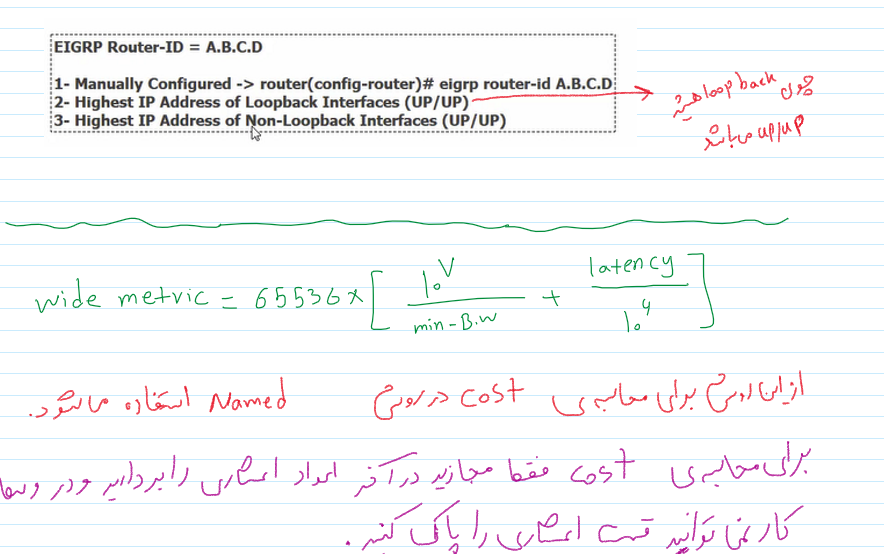 EIGRP Router-ID = A.B.C.D
1- Manually Configured -> router(config-router)# eigrp router-id A.B.C.D
2- Highest IP Address of Loopback Interfaces (UP/UP)
3- Highest IP Address of Non-Loopback Interfaces (UP/UP)
چون loopback همیشه
up/up می باشد
wide metric = 65536 × [ ۱۰^۷ / min-B.W + latency / ۱۰^۶ ]
از این روش برای محاسبه ی cost در روش Named استفاده می شود.
برای محاسبه ی cost فقط مجازید در آخر اعداد اعشاری را بردارید و در وسط
کار نمی توانید قسمت اعشاری را پاک کنید.